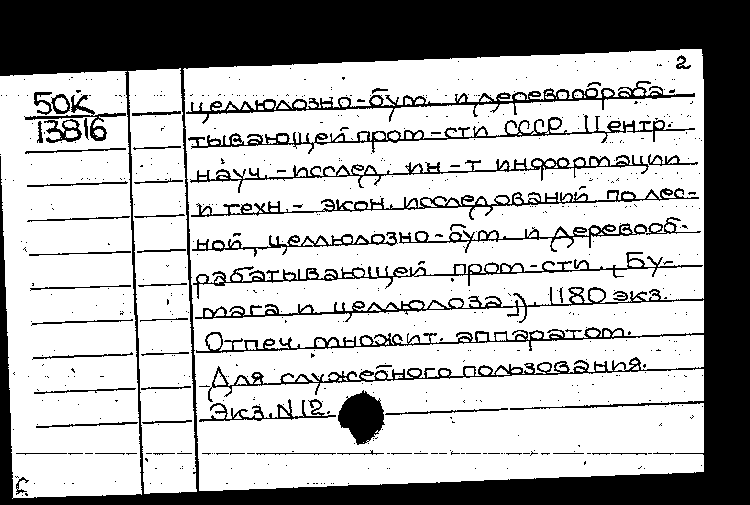 2
50К
13816
целлюлозно-бум. и деревообраба-
тывающей пром-сти СССР. Центр.
науч.-исслед. ин-т информации
и техн.-экон. исследований по лес-
ной, целлюлозно-бум. и деревооб-
рабатывающей пром-сти. [Бу-
мага и целлюлоза]). 1180 экз.
Отпеч. множит. аппаратом.
Для служебного пользования.
Экз. N 12.